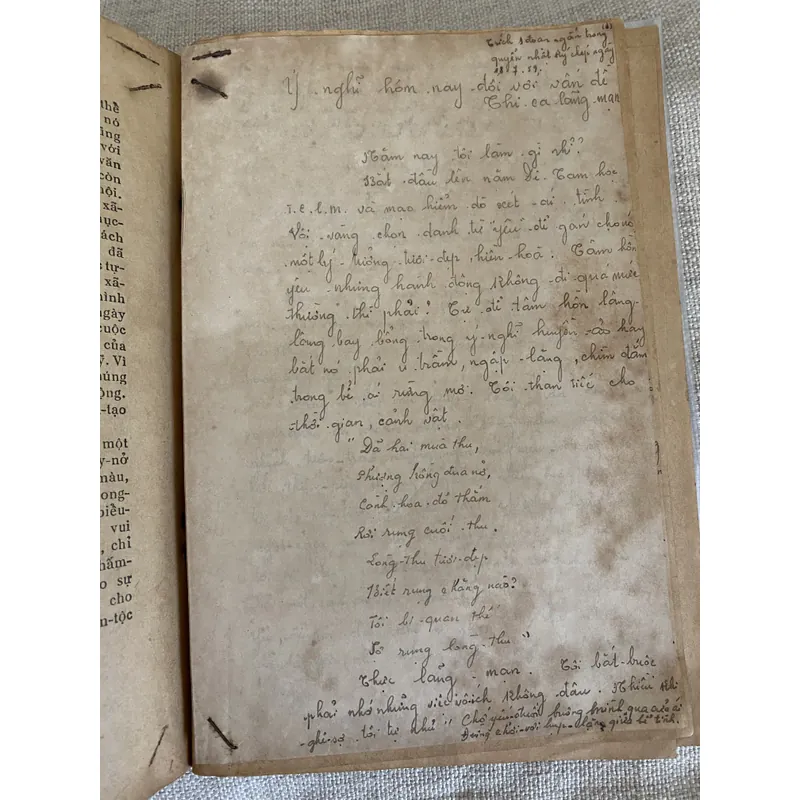 thể
nó
ũng
với
văn
còn
hội.
xã-
ục-
ách
đã
tự-
xã-
hình
gày
cuộc
của
ỷ. Vì
húng
ộng.
-tạo
một
y-nở
màu,
ong-
biểu-
vui
, chỉ
hấm-
o sự
cho
n-tộc
Trích 1 đoạn ngắn trong
quyển nhật ký chép ngày
28.7.59.
Ý nghĩ hôm nay đối với vấn đề
Thi ca lãng mạn
Năm nay tôi làm gì nhỉ?
Bắt đầu lên năm Đệ Tam học
và mạo hiểm dò xét ái tình
Vội vàng chọn danh từ "yêu" để gán cho nó
một lý tưởng tươi đẹp, hiền hoà. Tâm hồn
yêu nhưng hành động không đi quá mức
thường thì phải! Tự để tâm hồn lâng
lâng bay bổng trong ý nghĩ huyền ảo hay
bắt nó phải u trầm, ngáp lặng, chìm đắm
trong bể ái rừng mơ. Tôi than tiếc cho
thời gian, cảnh vật.
"Đã hai mùa thu,
Phượng hồng đua nở,
Cánh hoa đỏ thắm
Rơi rụng cuối thu.
Lòng thu tươi đẹp
Biết rụng chăng nào?
Tôi bi quan thế
Sợ rụng lòng thu"
Thực lãng mạn. Tôi bắt buộc
phải nhớ những việc vô ích không đâu. Nhiều khi
ghê sợ tôi tự nhủ "Chớ yếu đuối buông mình qua cửa ái
Đừng chơi vơi hụp lặng giữa bể tình.